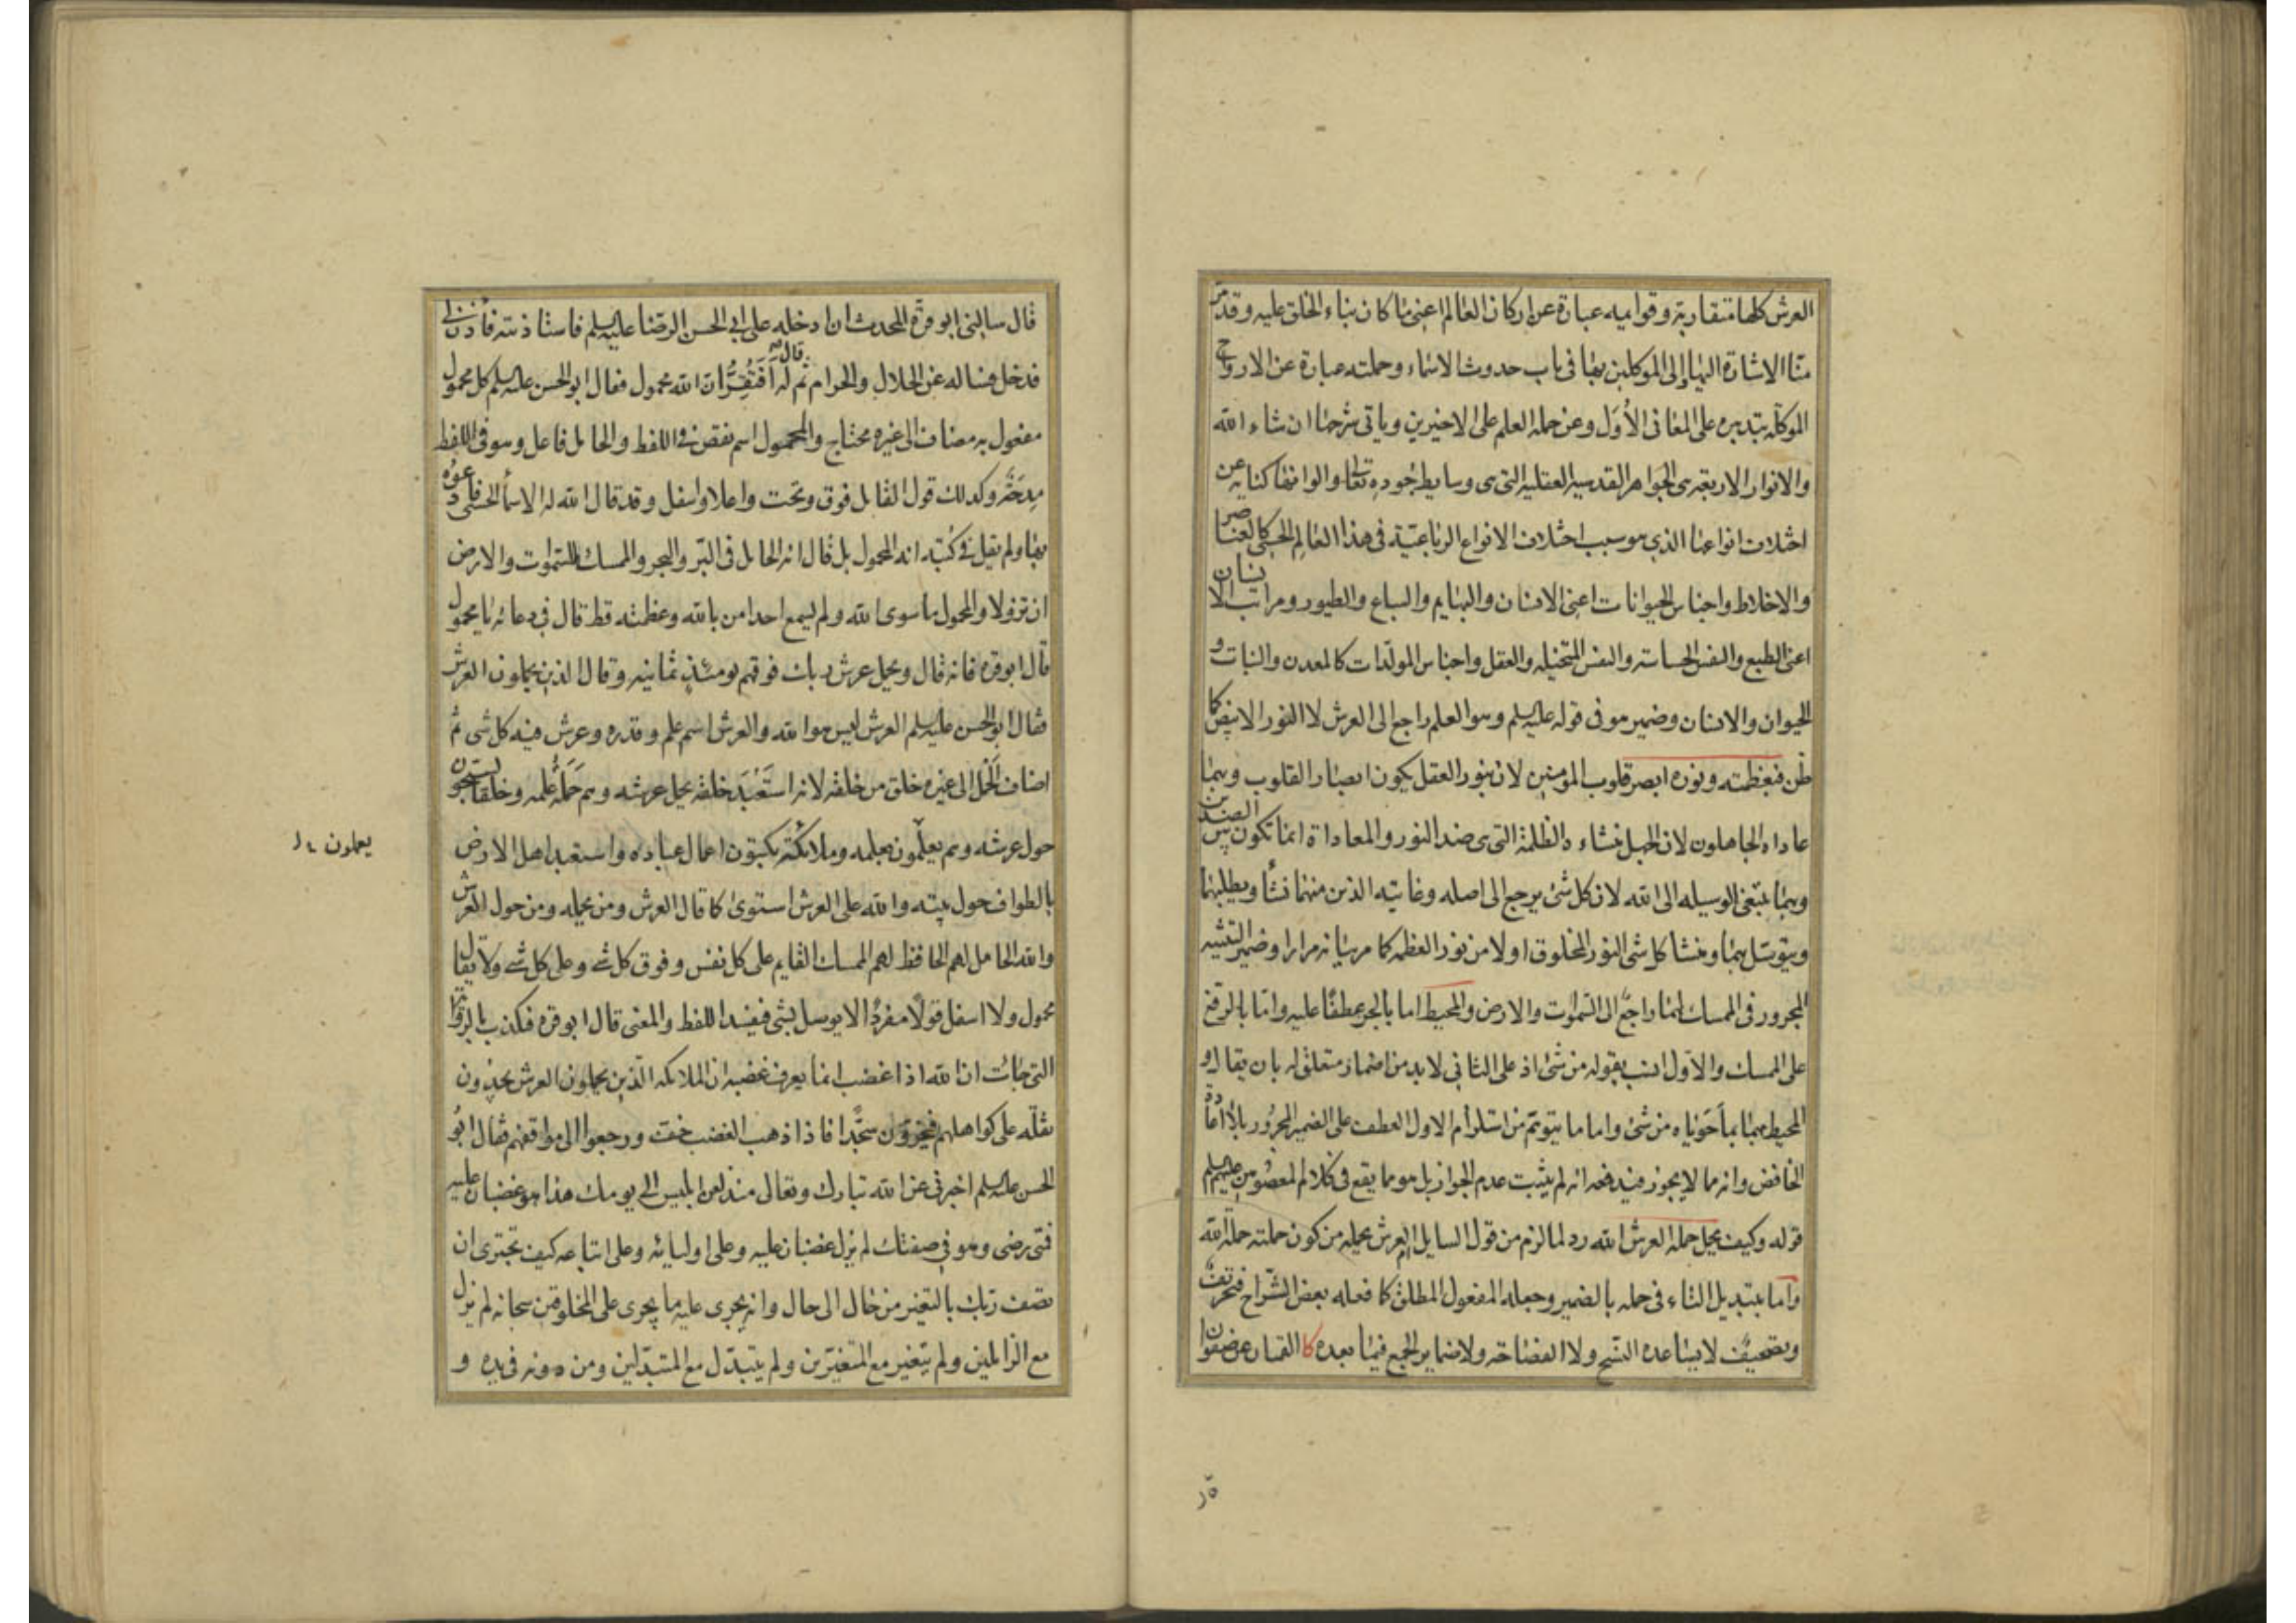 العرش كلها متقاربة وقوايمه عبارة عن اركان العالم اعنى ما كان بناء الخلق عليه وقد مرّ
منّا الاشارة اليها والى الموكلين بها فى باب حدوث الاسماء وحملته عبارة عن الارواح
الموكلة بتدبيره على المعانى الأول وعن حملة العلم على الاخيرين وياتى شرحها ان شاء الله
والانوار الاربعة هى الجواهر القدسية العقلية التى هى وسايط جوده تعالى والوانها كناية عن
اختلاف انواعها الذي هو سبب اختلاف الانواع الرباعية فى هذا العالم الحسّى كالعناصر
والاخلاط واجناس الحيوانات اعنى الانسان والبهايم والسباع والطيور ومراتب الانسان
اعنى الطبع والنفس الحساسة والنفس المتخيلة والعقل واجناس المولّدات كالمعدن والنبات و
الحيوان والانسان وضمير هو فى قوله عليه السلم وهو العلم راجع الى العرش لا النور الابيض كما
ظن فبعظمته ونوره ابصر قلوب المؤمنين لان بنور العقل يكون ابصار القلوب وبهما
عاداه الجاهلون لان الجهل منشاءه الظلمة التى هى ضد النور والمعاداة انما تكون بين الضدين
وبهما ابتغى الوسيلة الى الله لان كل شئ يرجع الى اصله وغايته الذين منهما نشأ ويطلبهما
ويتوسّل بهما ومنشا كل شئ النور المخلوق اولا من نور العظمة كما مر بيانه مرارا وضمير التثنيه
المجرور فى الممسك لهما راجع الى السّموٰت والارض والمحيط اما بالجر عطفا عليه وامّا بالرفع
على الممسك والاول انسب بقوله من شئ اذ على الثانى لابد من اضمار متعلق له بان يقال و
المحيط بهما بما حَوَياه من شئ واما ما يتوهّم من استلزام الاول العطف على الضمير المجرور بلا اعادة
الخافض وانه مما لا يجوز فيدفعه انه لم يثبت عدم الجواز بل هو مما يقع فى كلام المعصومين عليهم السلم
قوله وكيف يحمل حملة العرش الله رد لما لزم من قول السايل العرش يحمله من كون حملته حملة الله
واما تبديل التاء فى حمله بالضمير وجعله المفعول المطلق كما فعله بعض الشرّاح فتحريف
وتصحيف لا يساعده النسخ ولا الفصاحة ولا ضماير الجمع فيما بعده كا القمان عن صفوان
ره
قال سالنى ابو قرّة المحدث ان ادخله على ابى الحسن الرضا عليه السلم فاستاذنته فأذن لى
فدخل فساله عن الحلال والحرام ثم قال له أفتُقِرُّ ان الله محمول فقال ابو الحسن عليه السلم كل محمول
مفعول به مضاف الى غيره محتاج والمحمول اسم نقص فى اللفظ والحامل فاعل وهو فى اللفظ
مِدحَة وكذلك قول القايل فوق وتحت واعلا واسفل وقد قال الله له الاسمأ الحسنى فادعوه
بها ولم يقل فى كتبه انه المحمول بل قال انه الحامل فى البّر والبحر والممسك للسّموٰت والارض
ان تزولا والمحمول ما سوى الله ولم يسمع احد امن بالله وعظمته قط قال فى دعائه يا محمول
قال ابو قره فانه قال ويحمل عرش ربك فوقهم يومئذٍ ثمانيه وقال الذين يحملون العرش
فقال ابو الحسن عليه السلم العرش ليس هو الله والعرش اسم علم وقدره وعرش فيه كل شى ثم
اضاف الحَمْل الى غيره خلق من خلقه لانه استَعْبَدَ خلقه بحمل عرشه وهم حَمَلَة علمه وخلقا يسبحون
حول عرشه وهم يعلّمون بعلمه وملائكة يكتبون اعمال عباده واستعبد اهل الارض
يعملون
بالطواف حول بيته والله على العرش استوى كما قال العرش ومن يحمله ومن حول العرش
والله الحامل لهم الحافظ لهم الممسك القايم على كل نفس وفوق كل شئ وعلى كل شئ ولا يقال
محمول ولا اسفل قولًا مفردًا لا يوصل بشى فيفسد اللفظ والمعنى قال ابو قره فتكذب بالرواية
التى جائت ان الله اذا غضب انما يعرف غضبه ان الملائكة الّذين يحملون العرش يجدون
ثقله على كواهلهم فيخرّون سجّدا فاذا ذهب الغضب خفت ورجعوا الى مواقفهم فقال ابو
الحسن عليه السلم اخبرنى عن الله تبارك وتعالى منذ لعن ابليس الى يومك هذا هو غضبان عليه
فمتى رضى وهو فى صفتك لم يزل غضبان عليه وعلى اوليائه وعلى اتباعه كيف تجترى ان
تصف ربّك بالتغير من حال الى حال وانه يجرى عليه ما يجرى على المخلوقين سبحانه لم يزل
مع الزائلين ولم يتغير مع المتغيّرين ولم يتبدّل مع المتبدّلين ومن دونه فى يده و